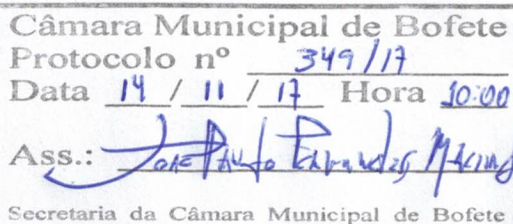 Câmara Municipal de Bofete
Protocolo nº 349/17
Data 14 / 11 / 17 Hora 10:00
Ass.: José Paulo Fernandes
Secretaria da Câmara Municipal de Bofete